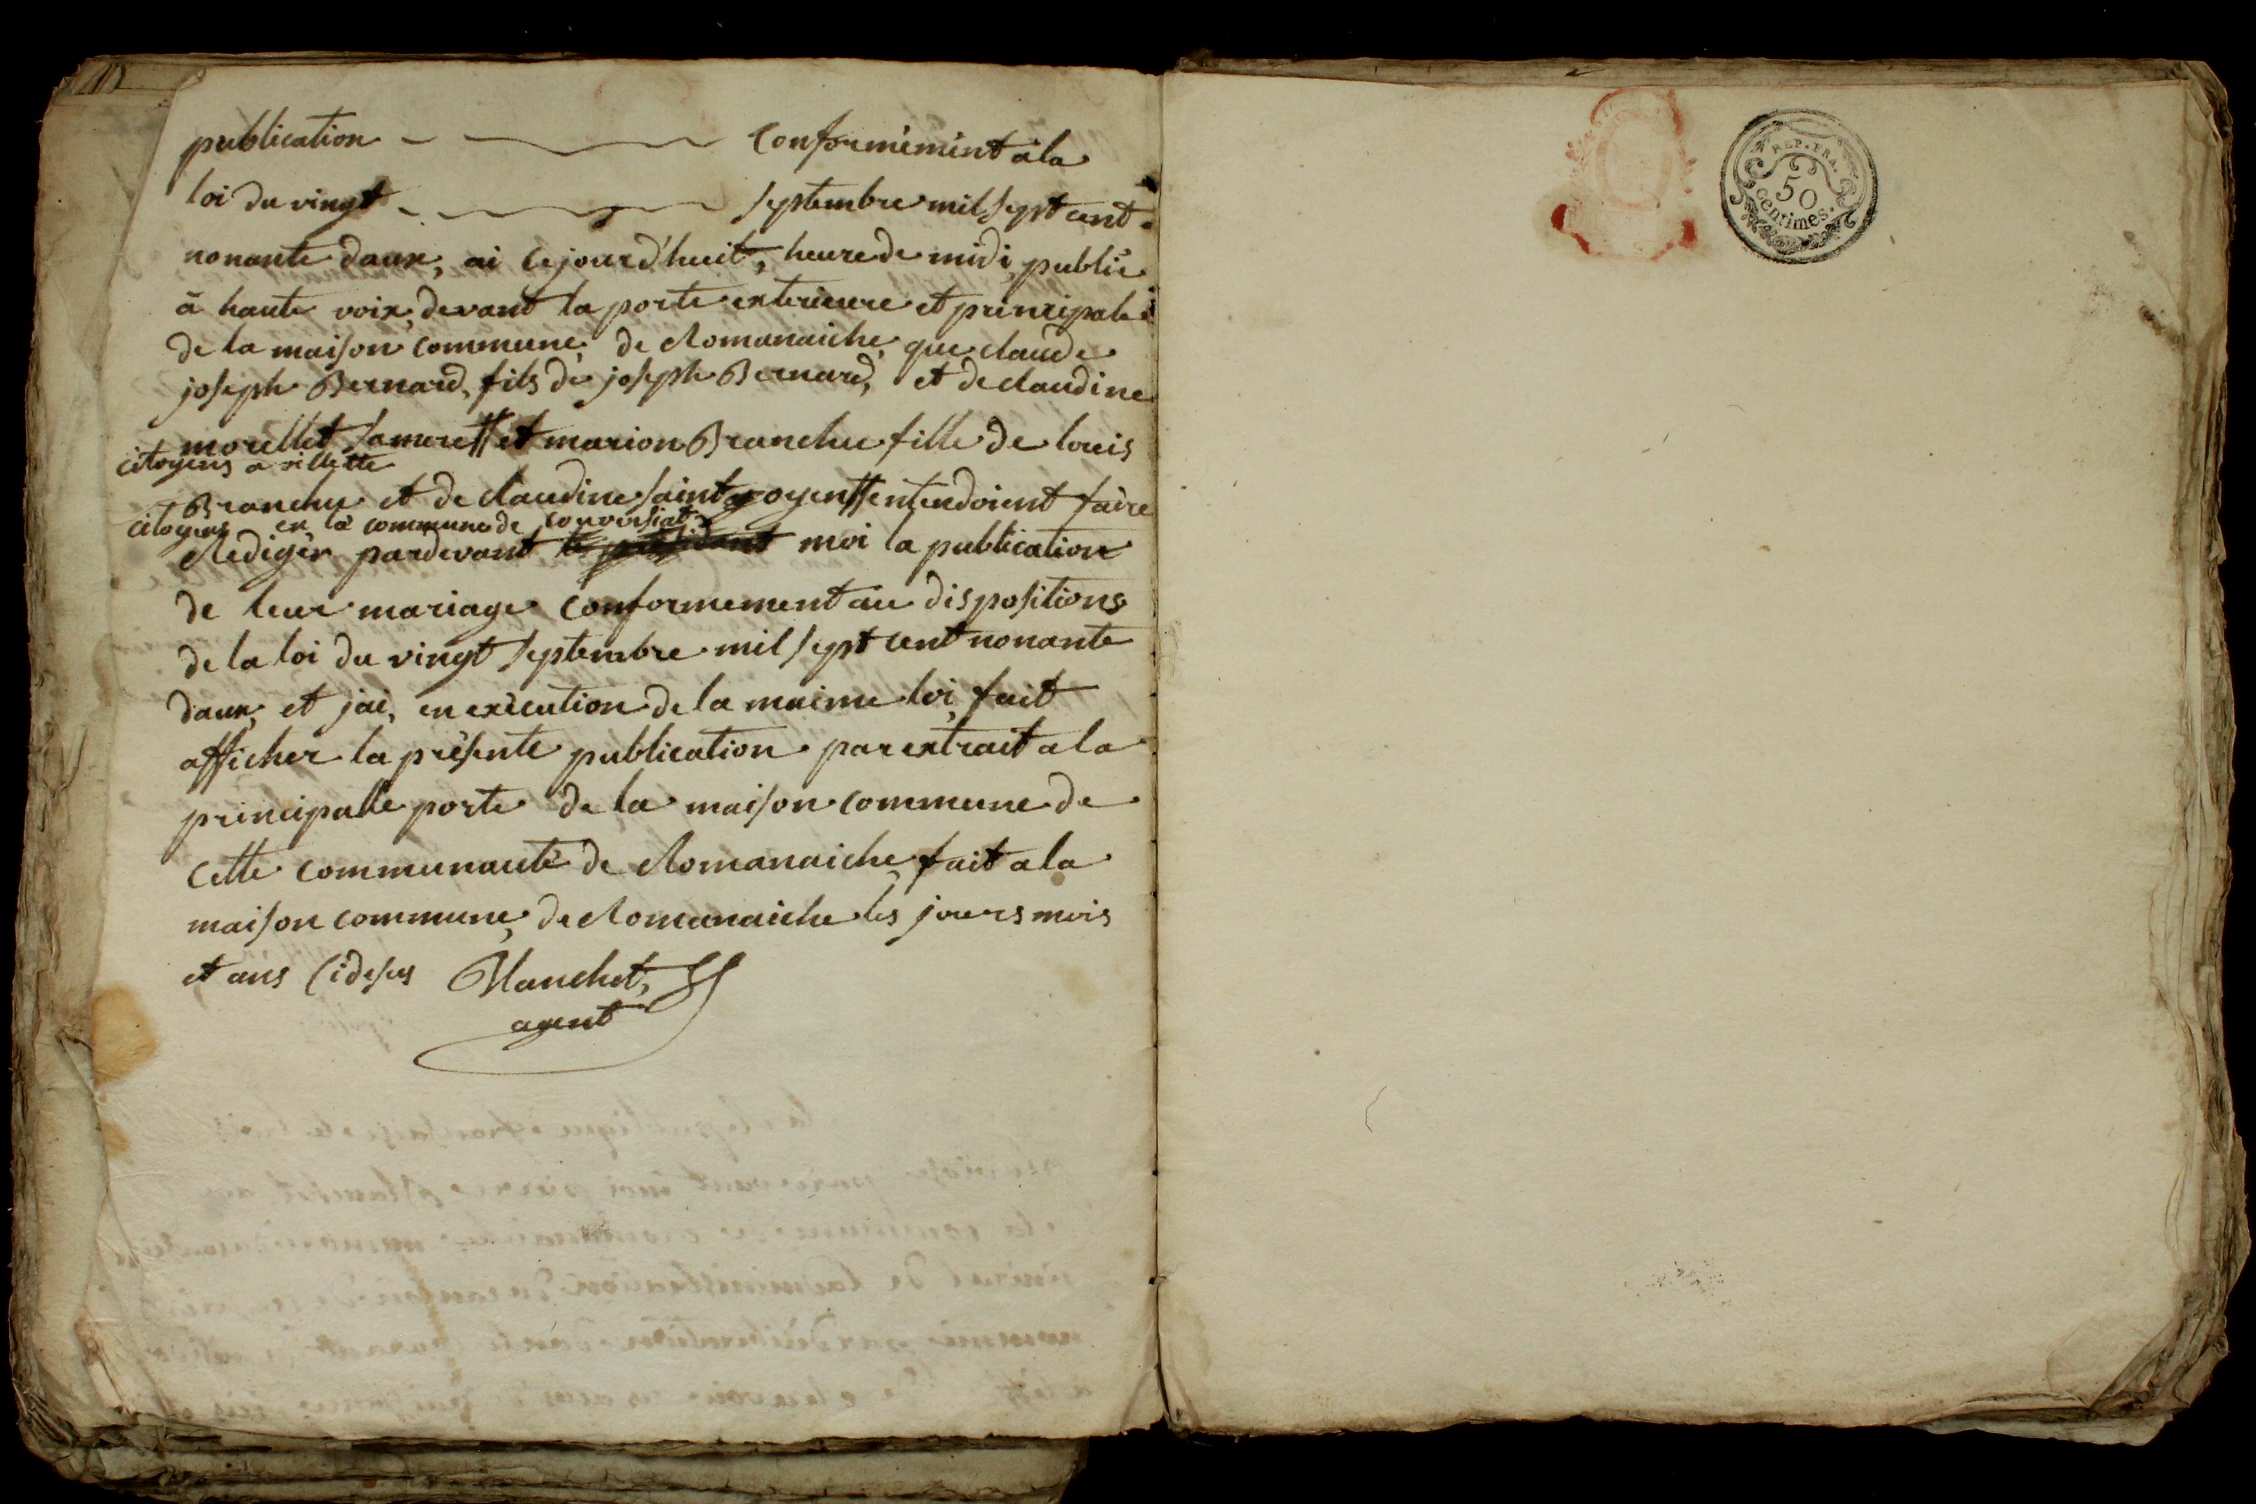 publication conformément a la
loi du vingt septembre mil sept cent
nonante daux, ai cejourd'huit, heure de midi, publié
à haute voix, devant la porte exterieure et principale
de la maison commune, de Romanaiche, que claude
joseph Bernard, fils de joseph Bernard, et de claudine
morellet sa mere // et marion Branchu fille de louis
citoyens a villette
Branchu et de claudine saint oyen // entendoient faire
citoyens en la commune de
Rediger pardevant moi la publication
de leur mariage conformement au dispositions
de la loi du vingt septembre mil sept cent nonante
daux, et jai, en exécution de la maime loi, fait
afficher la présente publication par extrait a la
principale porte de la maison commune de
cette communauté de Romanaiche, fait a la
maison commune, de Romanaiche les jours mois
et ans cidesus Blanchet,
agent
REP. FRA.
50
centimes.